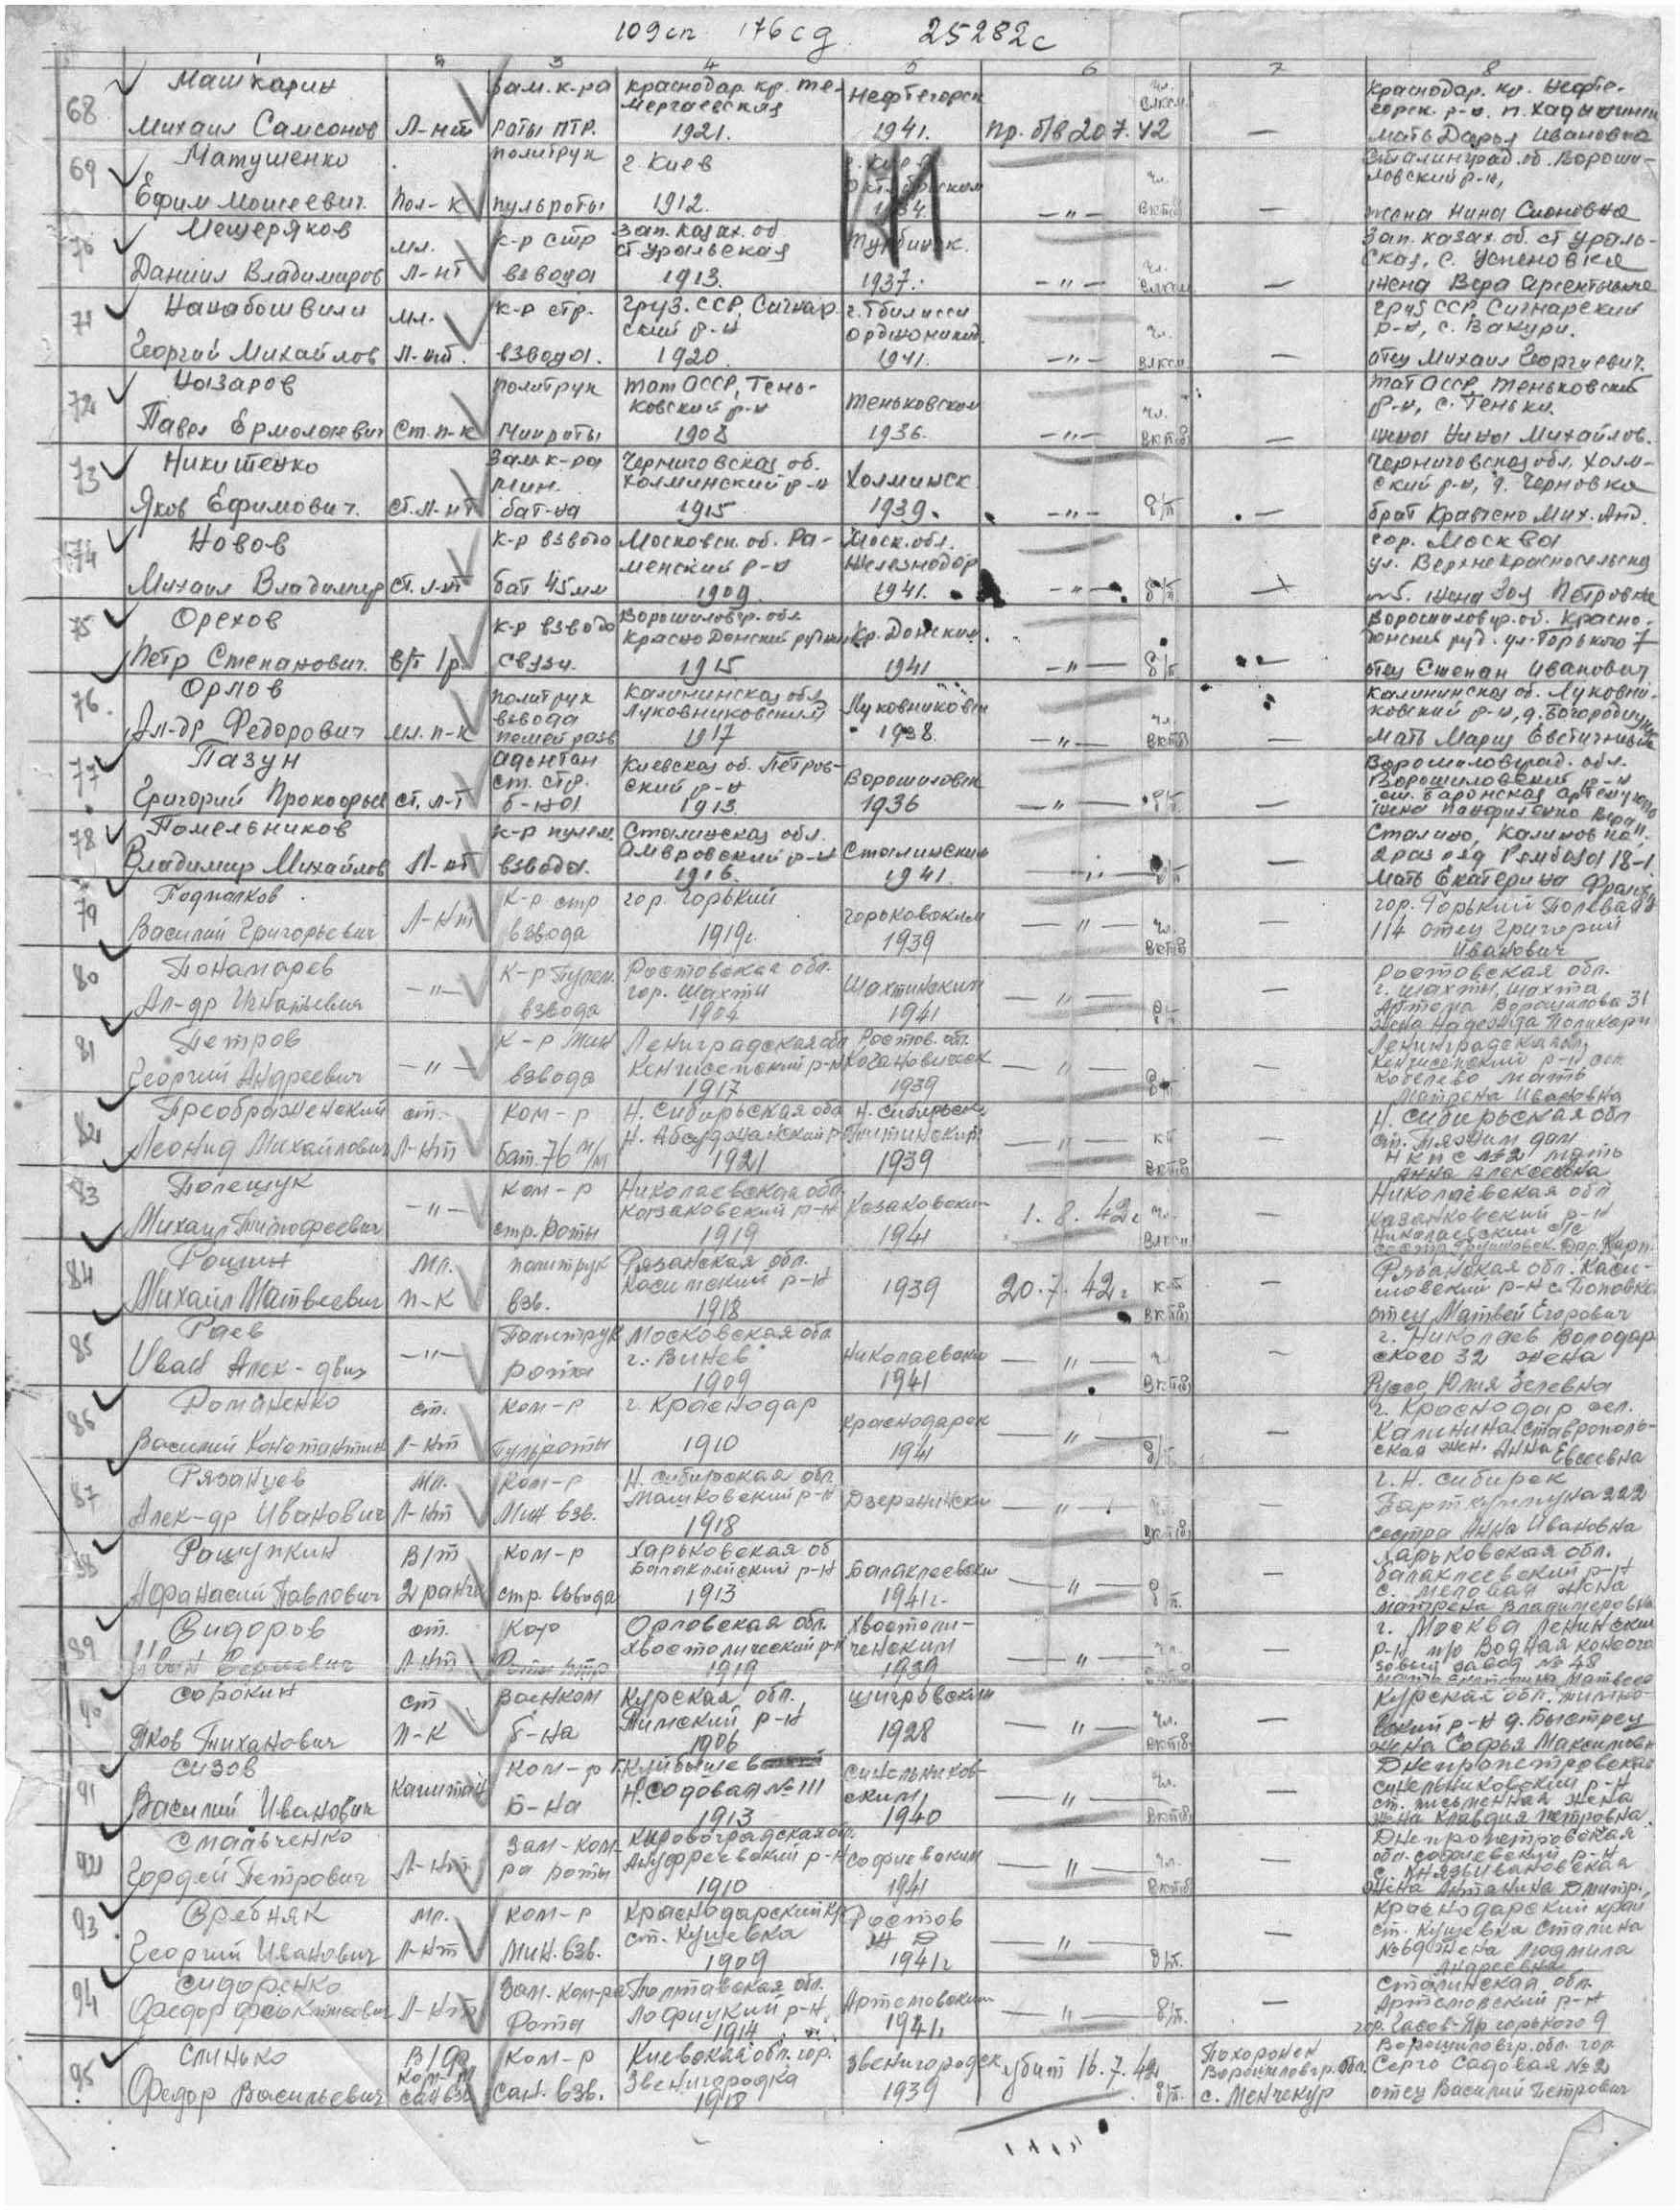 109сп 176сд 25282с
1 2 3 4 5 6 7 8
68 Машкарин Зам. к-ра Краснодар. кр. Те- Нефтегорск чл. Краснодар. кр. Нефте-
мергаевский влксм горск. р-н. п. Хадыжинск
Михаил Самсонов Л-нт роты ПТР. 1921. 1941. пр. б/в 20.7.42 — мать Дарья Ивановна
69 Матушенко политрук г. Киев г. Киев чл. Сталинград. об. Вороши-
Октябрьским ловский р-н,
Ефим Моисеевич Пол-к пульроты 1912. 1934. —"— вкпб — жена Нина Сионовна
70 Мещеряков мл. к-р стр Зап. казах. об. чл. Зап. казах. об. ст Ураль-
ст Уральская ская, с. Успеновка
Даниил Владимиров Л-нт взвода 1913. 1937. —"— влксм — жена Вера Арсентьевна
71 Нанабошвили мл. к-р стр. Груз. ССР, Сигнар- г. Тбилисси чл. Груз ССР, Сигнарский
ский р-н Орджоникид. р-н, с. Вакури.
Георгий Михайлов Л-нт. взвода. 1920. 1941. —"— влксм — отец Михаил Георгиевич.
72 Назаров политрук Тат АССР, Тень- Теньковском чл. Тат АССР, Теньковский
ковский р-н р-н, с. Теньки.
Павел Ермолаевич Ст. п-к Минроты 1908 1936. —"— вкпб — жена Нина Михайлов.
73 Никитенко Зам к-ра Черниговская об. Холминск Черниговская обл. Холм-
мин. Холминский р-н ский р-н, д. Черновка
Яков Ефимович. ст. Л-нт бат-на 1915 1939. —"— б/п — брат Кравчено Мих. Анд.
74 Новов к-р взвода Московск. об. Ра- Моск. обл. гор. Москва
менский р-н Железнодор ул. Верхнекрасносельская
Михаил Владимир ст. л-т бат 45мм 1909. 1941. —"— б/п — №5. жена Зоя Петровна
75 Орехов к-р взвода Ворошиловгр. обл. Кр. Донским. Ворошиловгр. об. Красно-
Краснодонский рудник донский руд. ул. Горького 7
Петр Степанович. в/т 1р. связи. 1915 1941 —"— б/п — отец Степан Иванович
76. Орлов политрук Калининская обл Луковниковск Калининская об. Луковни-
взвода Луковниковский чл. ковский р-н, д. Богородицкая
Ал-др Федорович мл. п-к пешей разв 1917 1938. —"— вкпб — мать Мария Евстигнеевна
77 Пазун адъютан Киевская об. Петров- Ворошиловск Ворошиловград. обл.
ст. стр. ский р-н Ворошиловский р-н
Григорий Прокофьев ст. Л-т б-на 1913 1936 —"— б/п — жена Панфиленко Вера
78 Помельников к-р пулем. Сталинская обл. Сталинским Сталино, Калиновка,
Амвровский р-н
Владимир Михайлов Л-нт взвода. 1916. 1941. —"— б/п — мать Екатерина Франц.
79 Подпалков Л-нт к-р стр гор. Горький Горьковским чл. гор. Горький Полевая
114 отец Григорий
Василий Григорьевич взвода 1919г. 1939 —"— вкпб — Иванович
80 Понамарев К-р Пулем. Ростовская обл. Шахтинским Ростовская обл.
гор. Шахты г. Шахты, шахта
Ал-др Игнатьевич —"— взвода 1904 1941 —"— б/п — Артема Ворошилова 31
жена Надежда Поликарп
81 Петров К-р Мин Ленинградская обл Ростов. обл. Ленинградская обл
Кенгисепский р-н Коганович Кенгисепский р-н сел.
Георгий Андреевич —"— взвода 1917 1939 —"— б/п Кобелево мать
Матрена Ивановна
82 Преображенский ст. ком-р Н. Сибирьская обл Н. Сибирьск. кт Н. Сибирьская обл
ст. Тяжим дом
Леонид Михайлович Л-нт бат. 76 м/м 1921 1939 —"— вкпб — НКПС №2 мать
Анна Алексеевна
83 Полещук ком-р Николаевская обл. Казаковским чл. Николаевская обл
Козаковский р-н Казанковский р-н
Михаил Тимофеевич —"— стр. роты 1919 1941 1.8.42г влксм — Николаевский с/с
84 Рощин Мл. политрук Рязанская обл. кт Рязанская обл. Каси-
Касимский р-н 1939 20.7.42г — мовский р-н с. Поповка
Михаил Матвеевич п-к взв. 1918 вкпб отец Матвей Егорович
85 Раев Политрук Московская обл Николаевским чл. г. Николаев Володар
г. Винев ского 32 жена
Иван Алек-двич —"— рота 1909 1941 —"— вкпб — Руссо Юлия Зелевна
86 Романенко ст. ком-р г. Краснодар Краснодарск г. Краснодар сел.
Калинина Ставрополь-
Василий Константин Л-нт Пульроты 1910 1941 —"— б/п — ская жен. Анна Евсеевна
87 Рязанцев Мл. ком-р Н. Сибирская обл. Дзержински чл. г. Н. Сибирск
Машковский р-н 222
Алек-др Иванович Л-нт Мин взв. 1918 —"— вкпб — сестра Анна Ивановна
88 Ращупкин В/т ком-р Харьковская об Балаклеевским Харьковская обл.
Балаклийский р-н балаклеевский р-н
Афанасий Павлович 2 ранга стр. взвода 1913 1941г. —"— б/п. — с. Меловая жена
Матрена Владимировна
89 Сидоров ст. Кор Орловская обл. Хвостоли- чл. г. Москва Ленинский
Хвостолический р-н ченским р-н п/о Водная
Иван Сергеевич Л-нт Роты ПТР 1919 1939 —"— — завод №48
90 Сорокин ст Военком Курская обл. Щигровским чл. Курская обл. Тимско-
Тимский р-н вский р-н д. Быстрец
Яков Тиханович п-к б-на 1906 1928 —"— вкпб — жена Софья Максимовн
91 Сизов Капитан ком-р Куйбышев Синельников- чл. Днепропетровская
Н. Садовая №111 ским синельниковский р-н
ст. письменная жена
Василий Иванович Б-на 1913 1940 —"— вкпб — жена Клавдия Петровна
92 Смальченко Зам-ком- Кировоградская об. Софиевским чл. Днепропетровская
Ануфреевский р-н обл. Софиевский р-н
Гордей Петрович Л-нт ра роты 1910 1941 —"— вкпб — с. Князьивановская
жена Антанина Дмитр.
93 Вребняк мл. ком-р Краснодарский кр Ростов Краснодарский край
ст. Кущевка ЖД ст. Кущевка Сталина
Георгий Иванович Л-нт Мин. взв. 1909 1941г —"— б/п. — №69 жена Людмила
Андреевна
94 Сидоренко Зам. ком-ра Полтавская обл. Артемовским Сталинская обл.
Лофицкий р-н Артемовский р-н
Федор Феоктистович Л-нт Рота 1914 1941г —"— б/п. — гор. Часов-Яр Горького 9
95 Слинько ком-р Киевская обл. гор. Звенигородск убит 16.7.42 Похоронен Ворошиловгр. обл. гор.
Звенигородка Ворошиловгр. обл. Серго Садовая №2
Федор Васильевич сан. взв. 1918 1939 б/п. с. Менчекур отец Василий Петрович